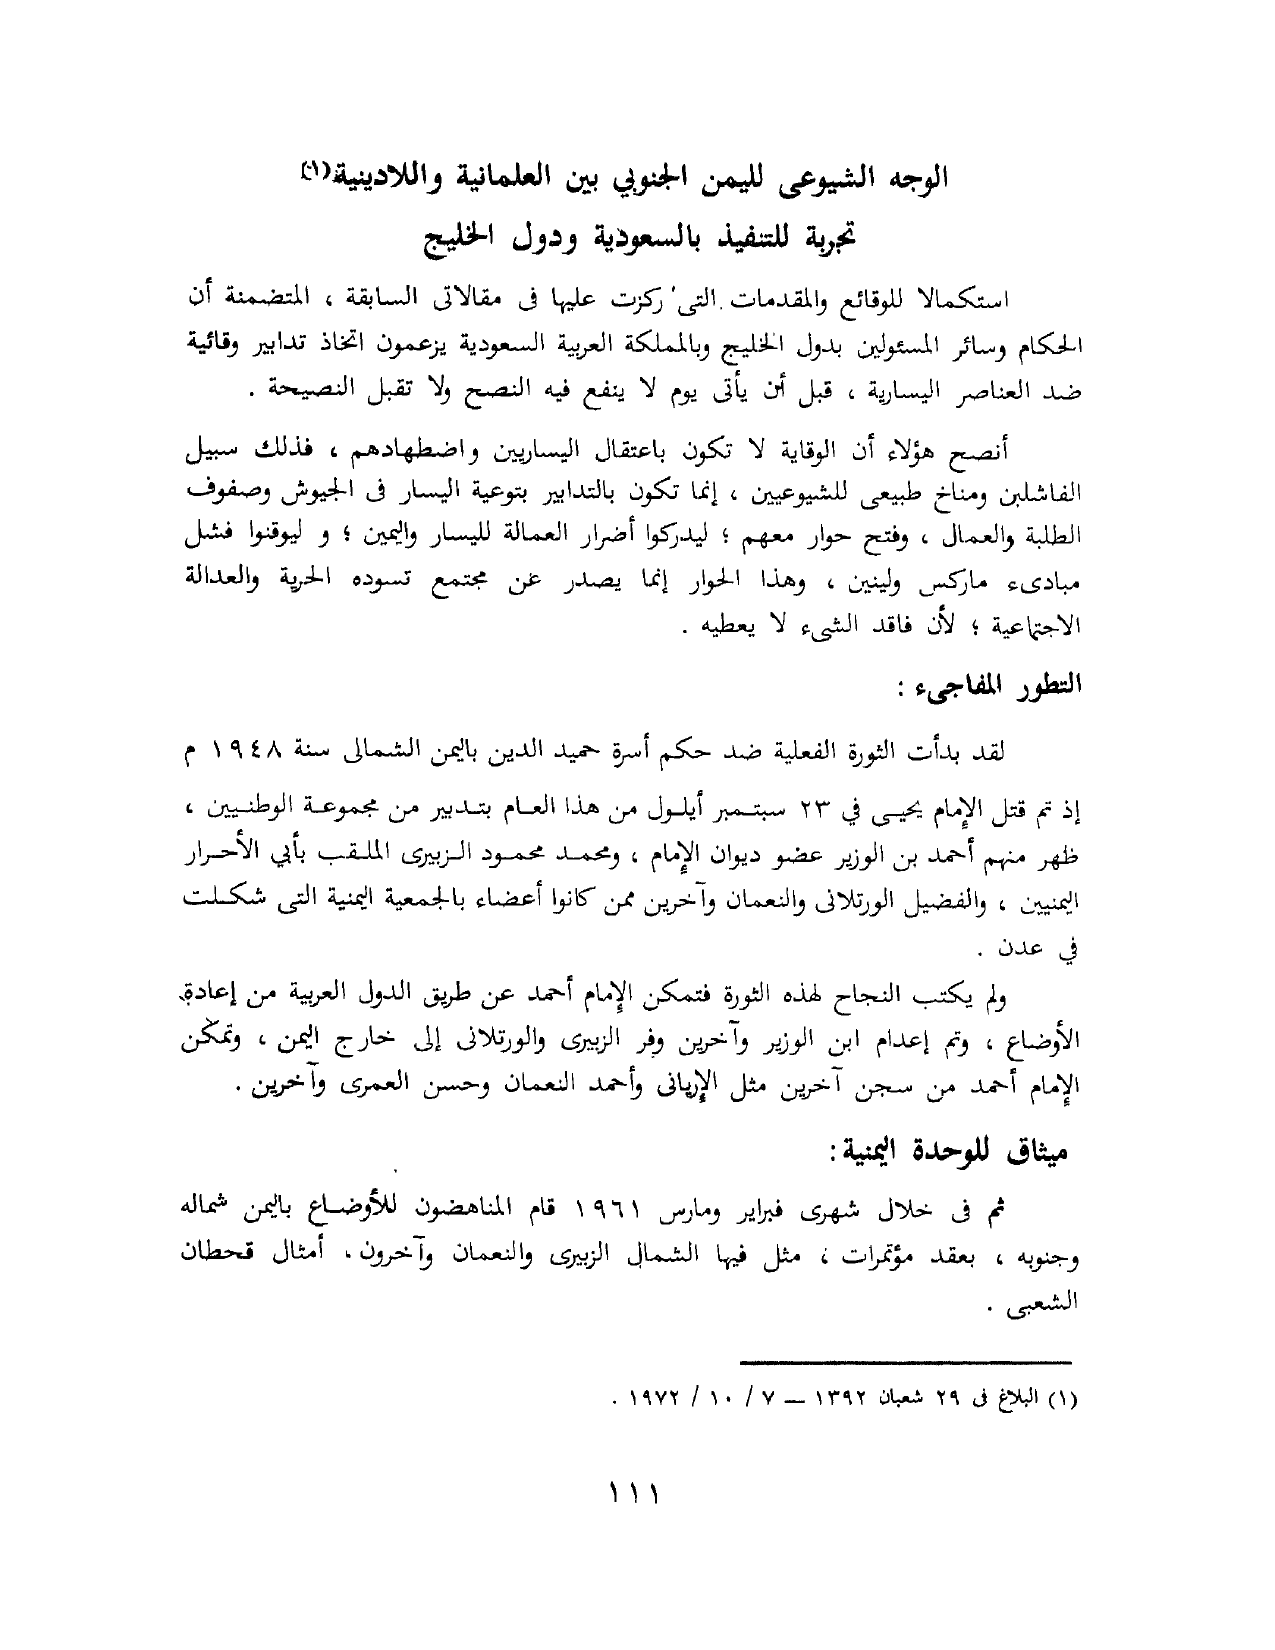 الوجه الشيوعى لليمن الجنوبي بين العلمانية واللادينية(١)
تجربة للتنفيذ بالسعودية ودول الخليج
استكمالا للوقائع والمقدمات التى ركزت عليها فى مقالاتى السابقة ، المتضمنة أن
الحكام وسائر المسئولين بدول الخليج وبالمملكة العربية السعودية يزعمون اتخاذ تدابير وقائية
ضد العناصر اليسارية ، قبل أن يأتى يوم لا ينفع فيه النصح ولا تقبل النصيحة .
أنصح هؤلاء أن الوقاية لا تكون باعتقال اليساريين واضطهادهم ، فذلك سبيل
الفاشلين ومناخ طبيعى للشيوعيين ، إنما تكون بالتدابير بتوعية اليسار فى الجيوش وصفوف
الطلبة والعمال ، وفتح حوار معهم ؛ ليدركوا أضرار العمالة لليسار واليمين ؛ و ليوقنوا فشل
مبادىء ماركس ولينين ، وهذا الحوار إنما يصدر عن مجتمع تسوده الحرية والعدالة
الاجتماعية ؛ لأن فاقد الشىء لا يعطيه .
التطور المفاجىء :
لقد بدأت الثورة الفعلية ضد حكم أسرة حميد الدين باليمن الشمالى سنة ١٩٤٨ م
إذ تم قتل الإمام يحيى في ٢٣ سبتمبر أيلول من هذا العام بتدبير من مجموعة الوطنيين ،
ظهر منهم أحمد بن الوزير عضو ديوان الإمام ، ومحمد محمود الزبيرى الملقب بأبي الأحرار
اليمنيين ، والفضيل الورتلانى والنعمان وآخرين ممن كانوا أعضاء بالجمعية اليمنية التى شكلت
في عدن .
ولم يكتب النجاح لهذه الثورة فتمكن الإمام أحمد عن طريق الدول العربية من إعادة
الأوضاع ، وتم إعدام ابن الوزير وآخرين وفر الزبيرى والورتلانى إلى خارج اليمن ، وتمكن
الإمام أحمد من سجن آخرين مثل الإريانى وأحمد النعمان وحسن العمرى وآخرين .
ميثاق للوحدة اليمنية :
ثم فى خلال شهرى فبراير ومارس ١٩٦١ قام المناهضون للأوضاع باليمن شماله
وجنوبه ، بعقد مؤتمرات ؛ مثل فيها الشمال الزبيرى والنعمان وآخرون ، أمثال قحطان
الشعبى .
(١) البلاغ فى ٢٩ شعبان ١٣٩٢ — ٧ / ١٠ / ١٩٧٢ .
١١١